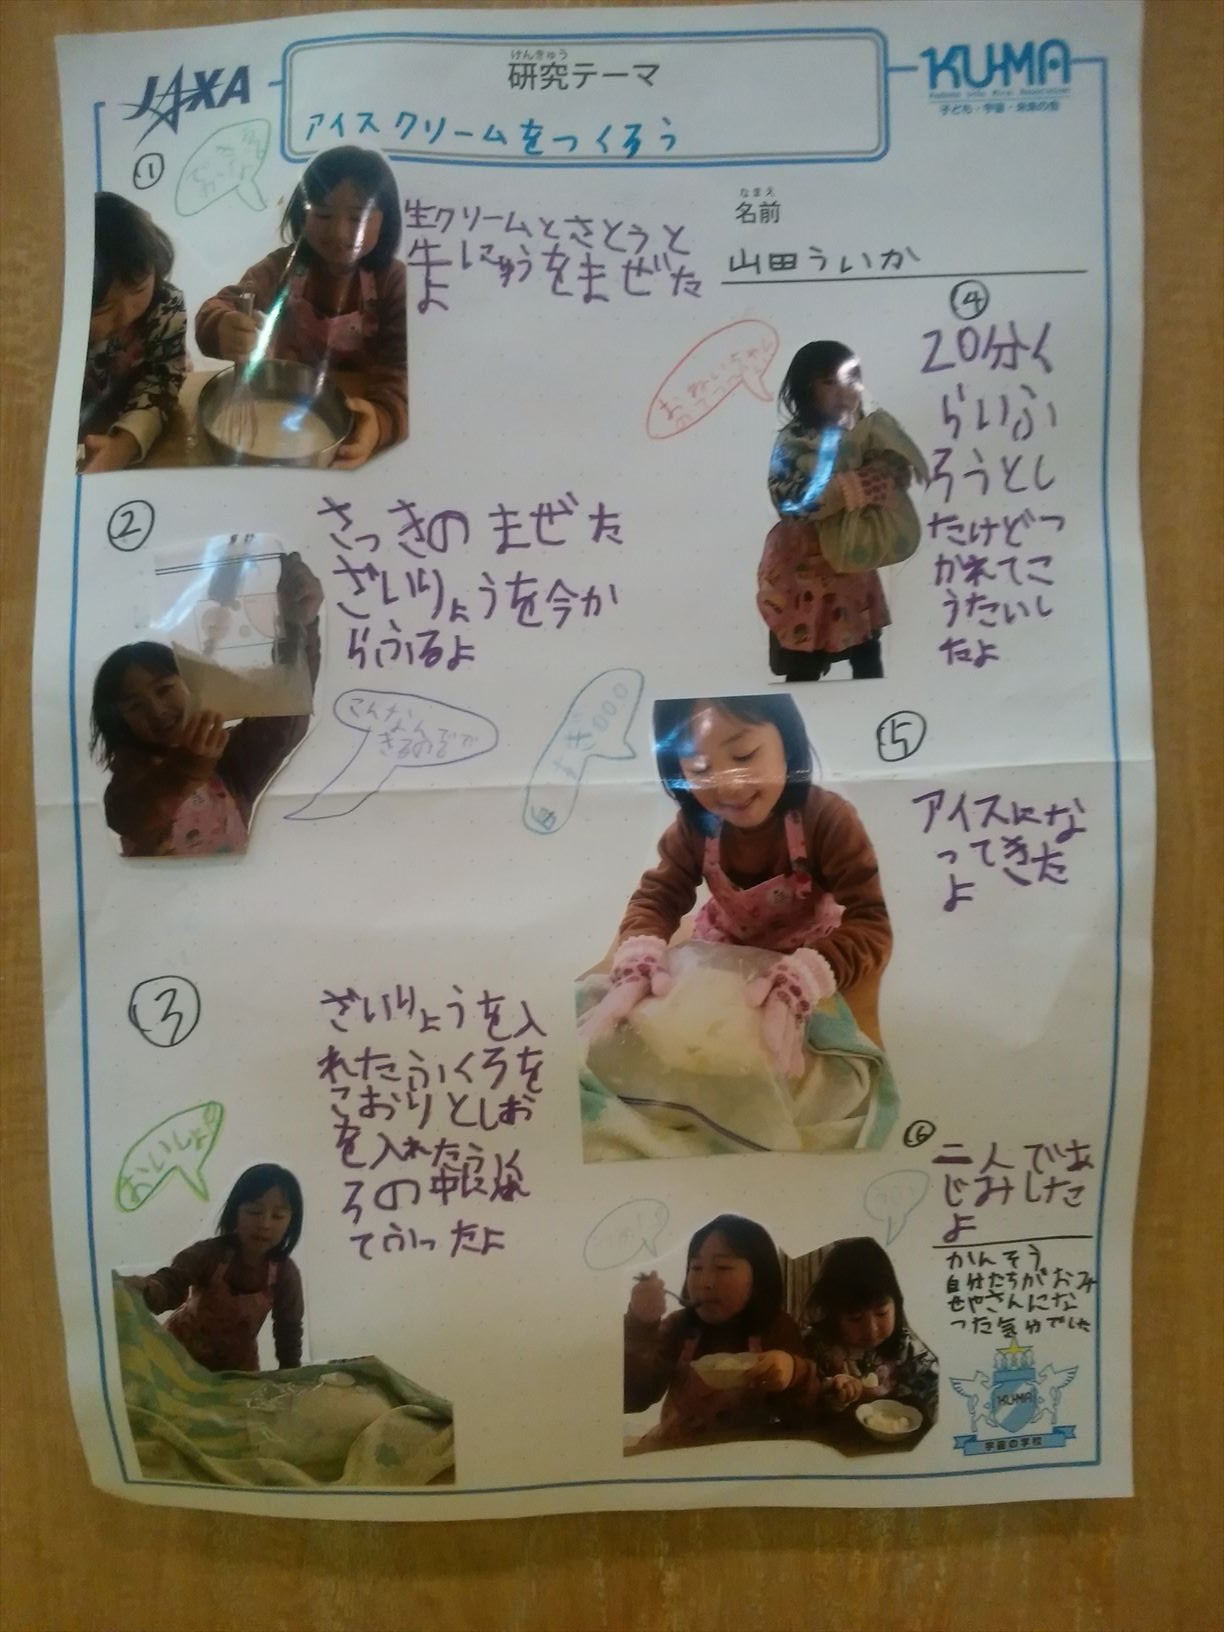 JAXA
けんきゅう
研究テーマ
アイスクリームをつくろう
KU-MA
子ども・宇宙・未来の会
なまえ
名前
山田ういか
①
生クリームとさとうと
牛にゅうをまぜた
よ
②
さっきのまぜた
ざいりょうを今か
らふるよ
こんな
なんで
③
ざいりょうを入
れたふくろを
こおりとしお
を入れたふく
ろの中に入れ
てふったよ
おいしょ
④
20分く
らいふ
ろうとし
たけどつ
かれてこ
うたいし
たよ
⑤
アイスにな
ってきた
よ
⑥
二人であ
じみしたよ
かんそう
自分たちがおみ
せやさんにな
った気分でした
KU-MA
宇宙の学校